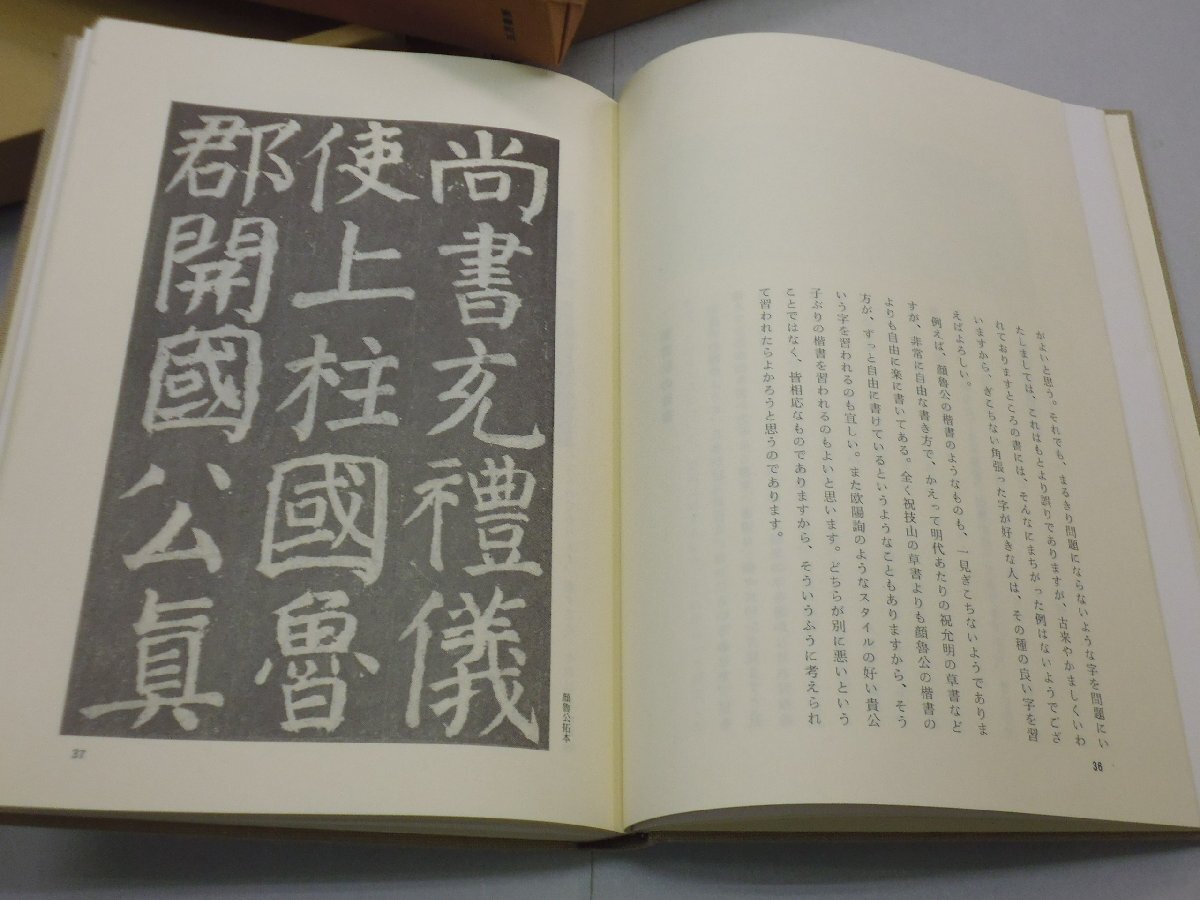 がよいと思う。それでも、まるきり問題にならないような字を問題にい
たしましては、これはもとより誤りでありますが、古来やかましくいわ
れておりますところの書には、そんなにまちがった例はないようでござ
いますから、ぎこちない角張った字が好きな人は、その種の良い字を習
えばよろしい。
例えば、顔魯公の楷書のようなものも、一見ぎこちないようでありま
すが、非常に自由な書き方で、かえって明代あたりの祝允明の草書など
よりも自由に楽に書いてある。全く祝技山の草書よりも顔魯公の楷書の
方が、ずっと自由に書けているというようなこともありますから、そう
いう字を習われるのも宜しい。また欧陽詢のようなスタイルの好い貴公
子ぶりの楷書を習われるのもよいと思います。どちらが別に悪いという
ことではなく、皆相応なものでありますから、そういうふうに考えられ
て習われたらよかろうと思うのであります。
36
顔魯公拓本
尚書充禮儀
使上柱國魯
郡開國公真
37